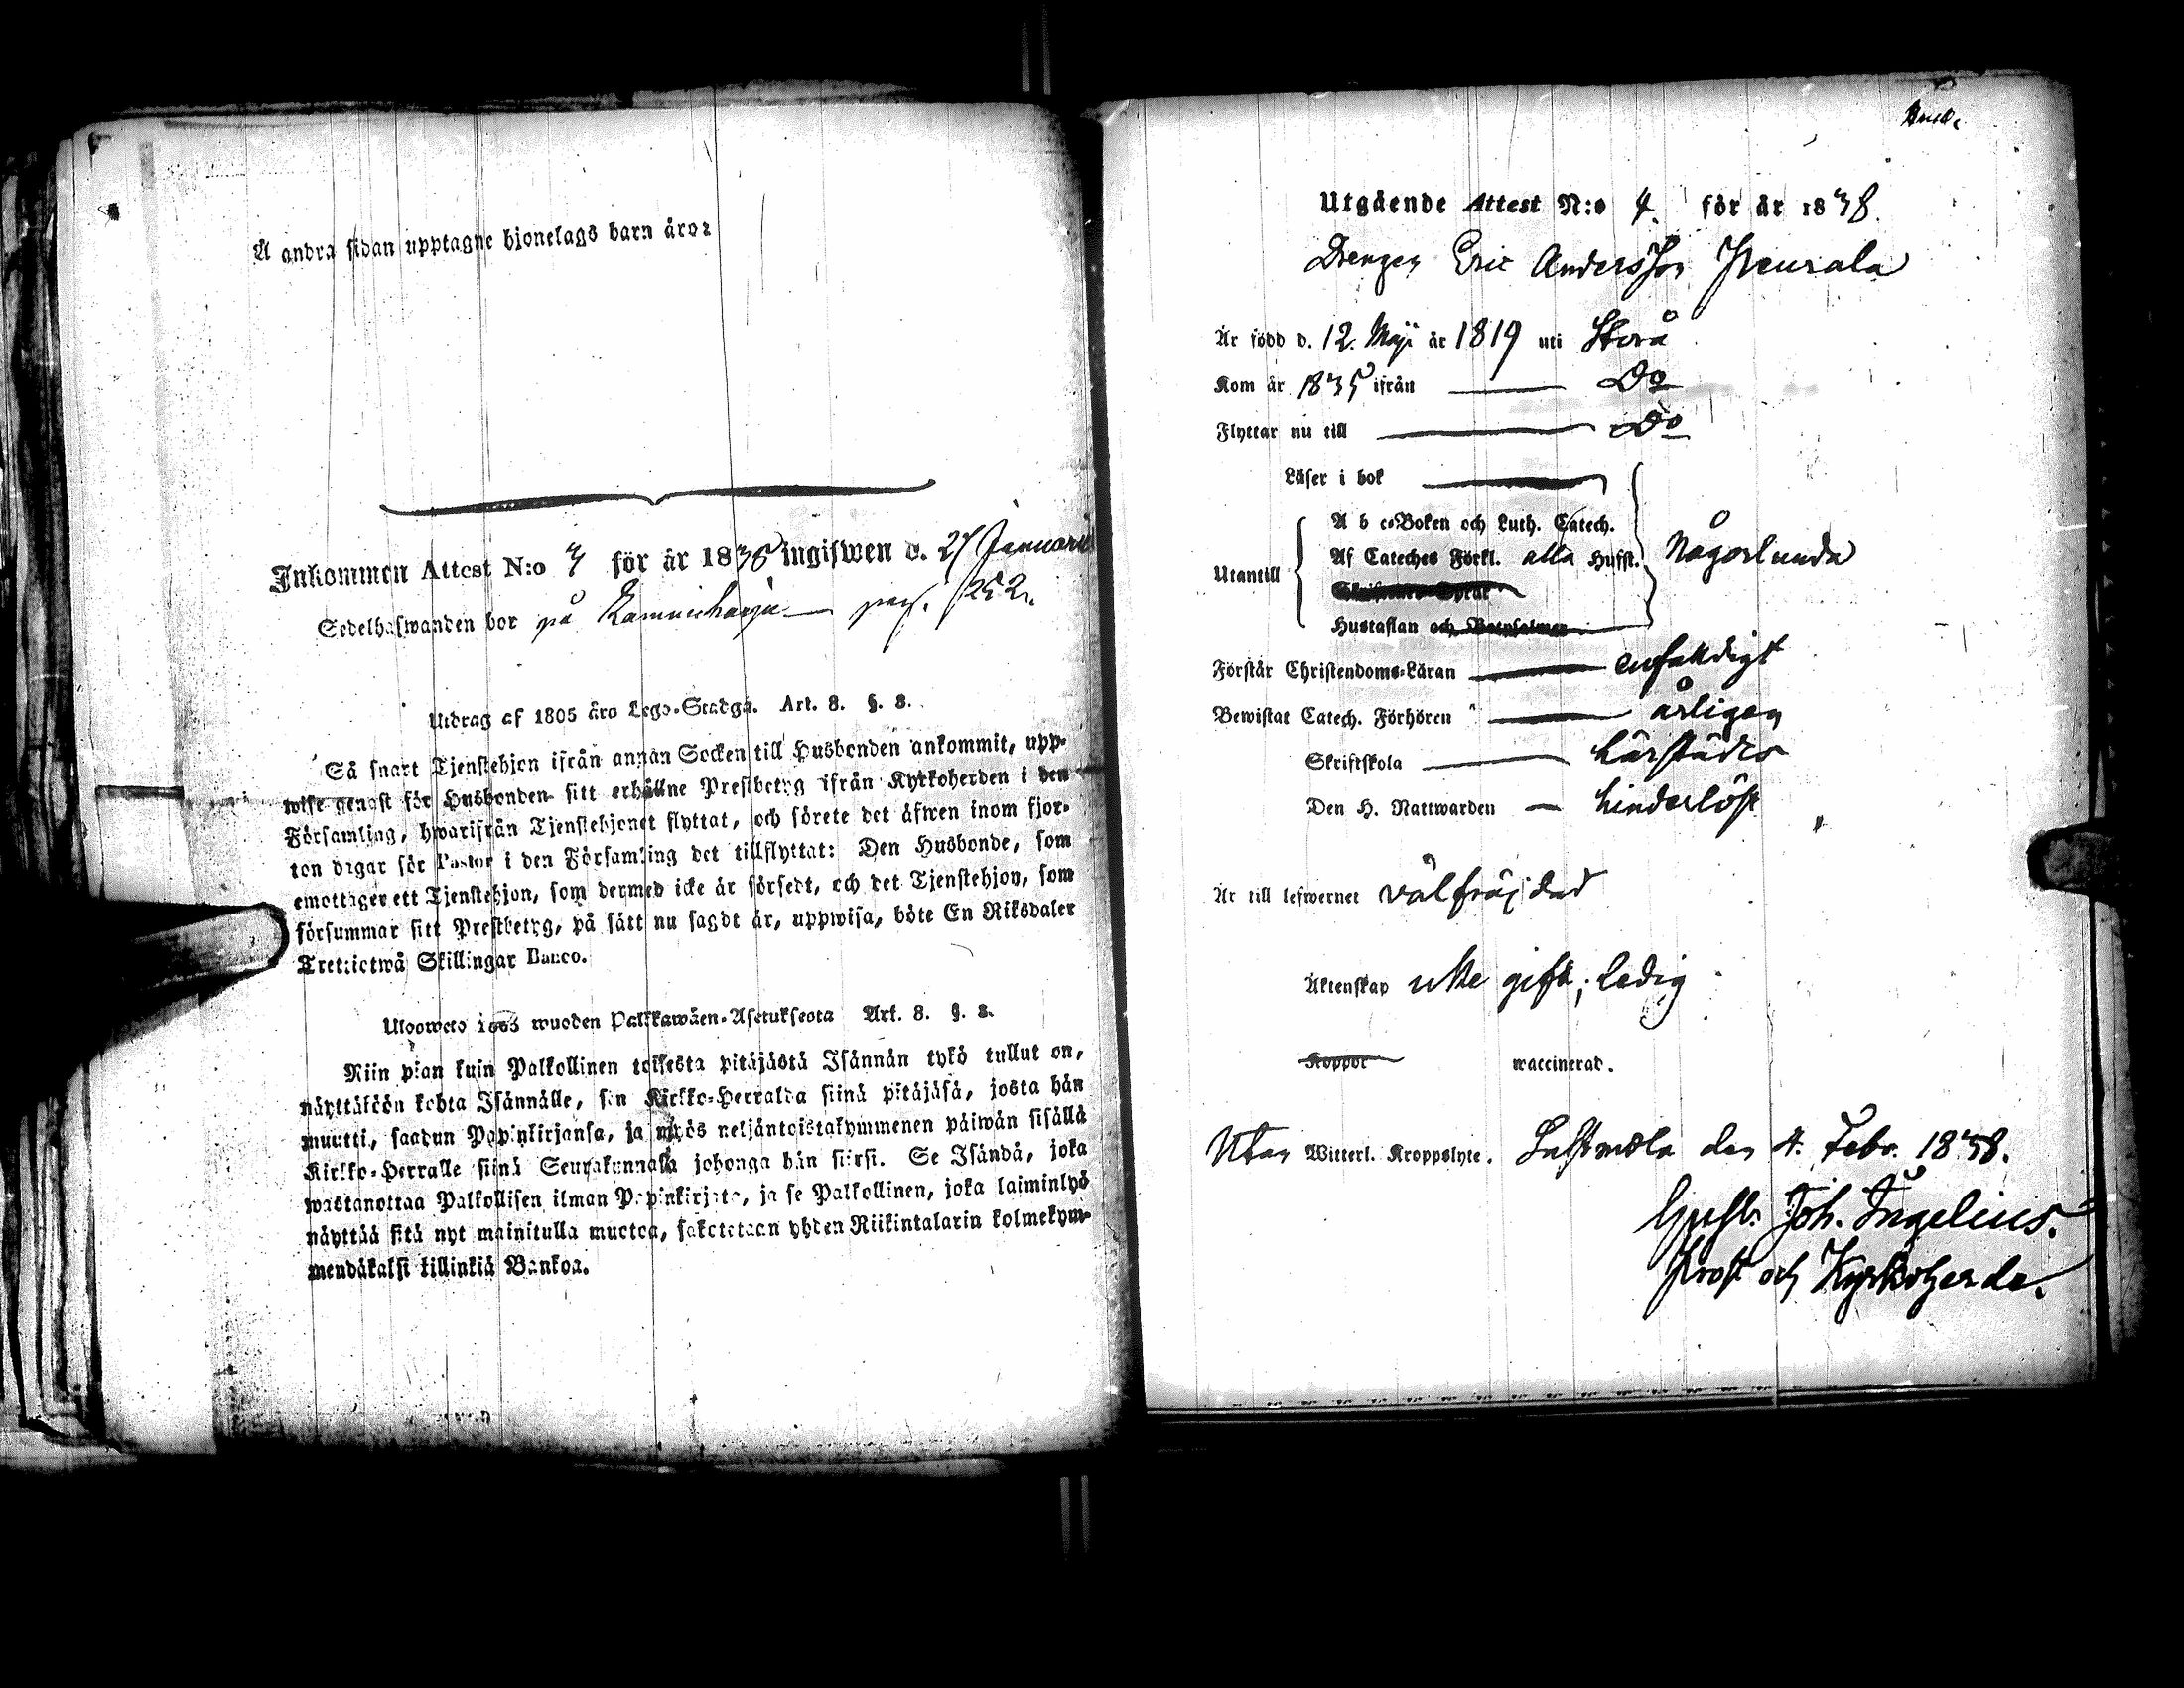 Å andra sidan upptagne hjonelags barn äro:
Inkommen Attest N:o 3 för år 1838 ingifwen d. 27 Januarii
Sedelhafwanden bor på pag. 252.
Utdrag af 1805 års Lego-Stadga. Art. 8. §. 8.
Så snart Tjenstehjon ifrån annan Socken till Husbonden ankommit, upp-
wise genast för Husbonden sitt erhållne Prestbetyg ifrån Kyrkoherden i den
Församling, hwarifrån Tjenstehjonet flyttat, och förete det äfwen inom fjor-
ton dagar för Pastor i den Församling det tillflyttat: Den Husbonde, som
emottager ett Tjenstehjon, som dermed icke är försedt, och det Tjenstehjon, som
försummar sitt Prestbetyg, på sätt nu sagdt är, uppwisa, böte En Riksdaler
Trettiotwå Skillingar Banco.
Uloosweto 1805 wuoden Palkkawäen-Asetuksesta Art. 8. §. 8.
Niin pian kuin Palkollinen toisesta pitäjästä Isännän tykö tullut on,
näyttäköön kohta Isännälle, sen Kirkko-Herralda siinä pitäjäsä, josta hän
muutti, saadun Papinkirjansa, ja myös neljäntoistakymmenen päiwän sisällä
Kirkko-Herralle siinä Seurakunnassa johonga hän siirsi. Se Isändä, joka
wastanottaa Palkollisen ilman Papinkirjata, ja se Palkollinen, joka laiminlyö
näyttää sitä nyt mainitulla muotoa, sakotetaan yhden Riikintalarin kolmekym-
mendäkaksi killinkiä Bankoa.
Utgående Attest N:o 4. för år 1838.
Drengen Eric Andersson Peurala
Är född d. 12. Maji år 1819 uti Storå
Kom år 1835 ifrån Do
Flyttar nu till Do
Läser i bok
A b c-Boken och Luth. Catech.
Utantill Af Cateches Förkl. alla Hufst. Någorlunda
Skriftenes Språk
Hustaflan och Botpsalmer
Förstår Christendoms-Läran enfaldigt
Bewistat Catech. Förhören årligen
Skriftskola härstädes
Den H. Nattwarden hinderlöst
Är till lefwernet välfräjdad
Äktenskap icke gift; ledig
Koppor waccinerad.
Utan Witterl. Kroppslyte. den 4. Febr. 1838.
Joh. Ingelius.
Prost och Kyrkoherde.